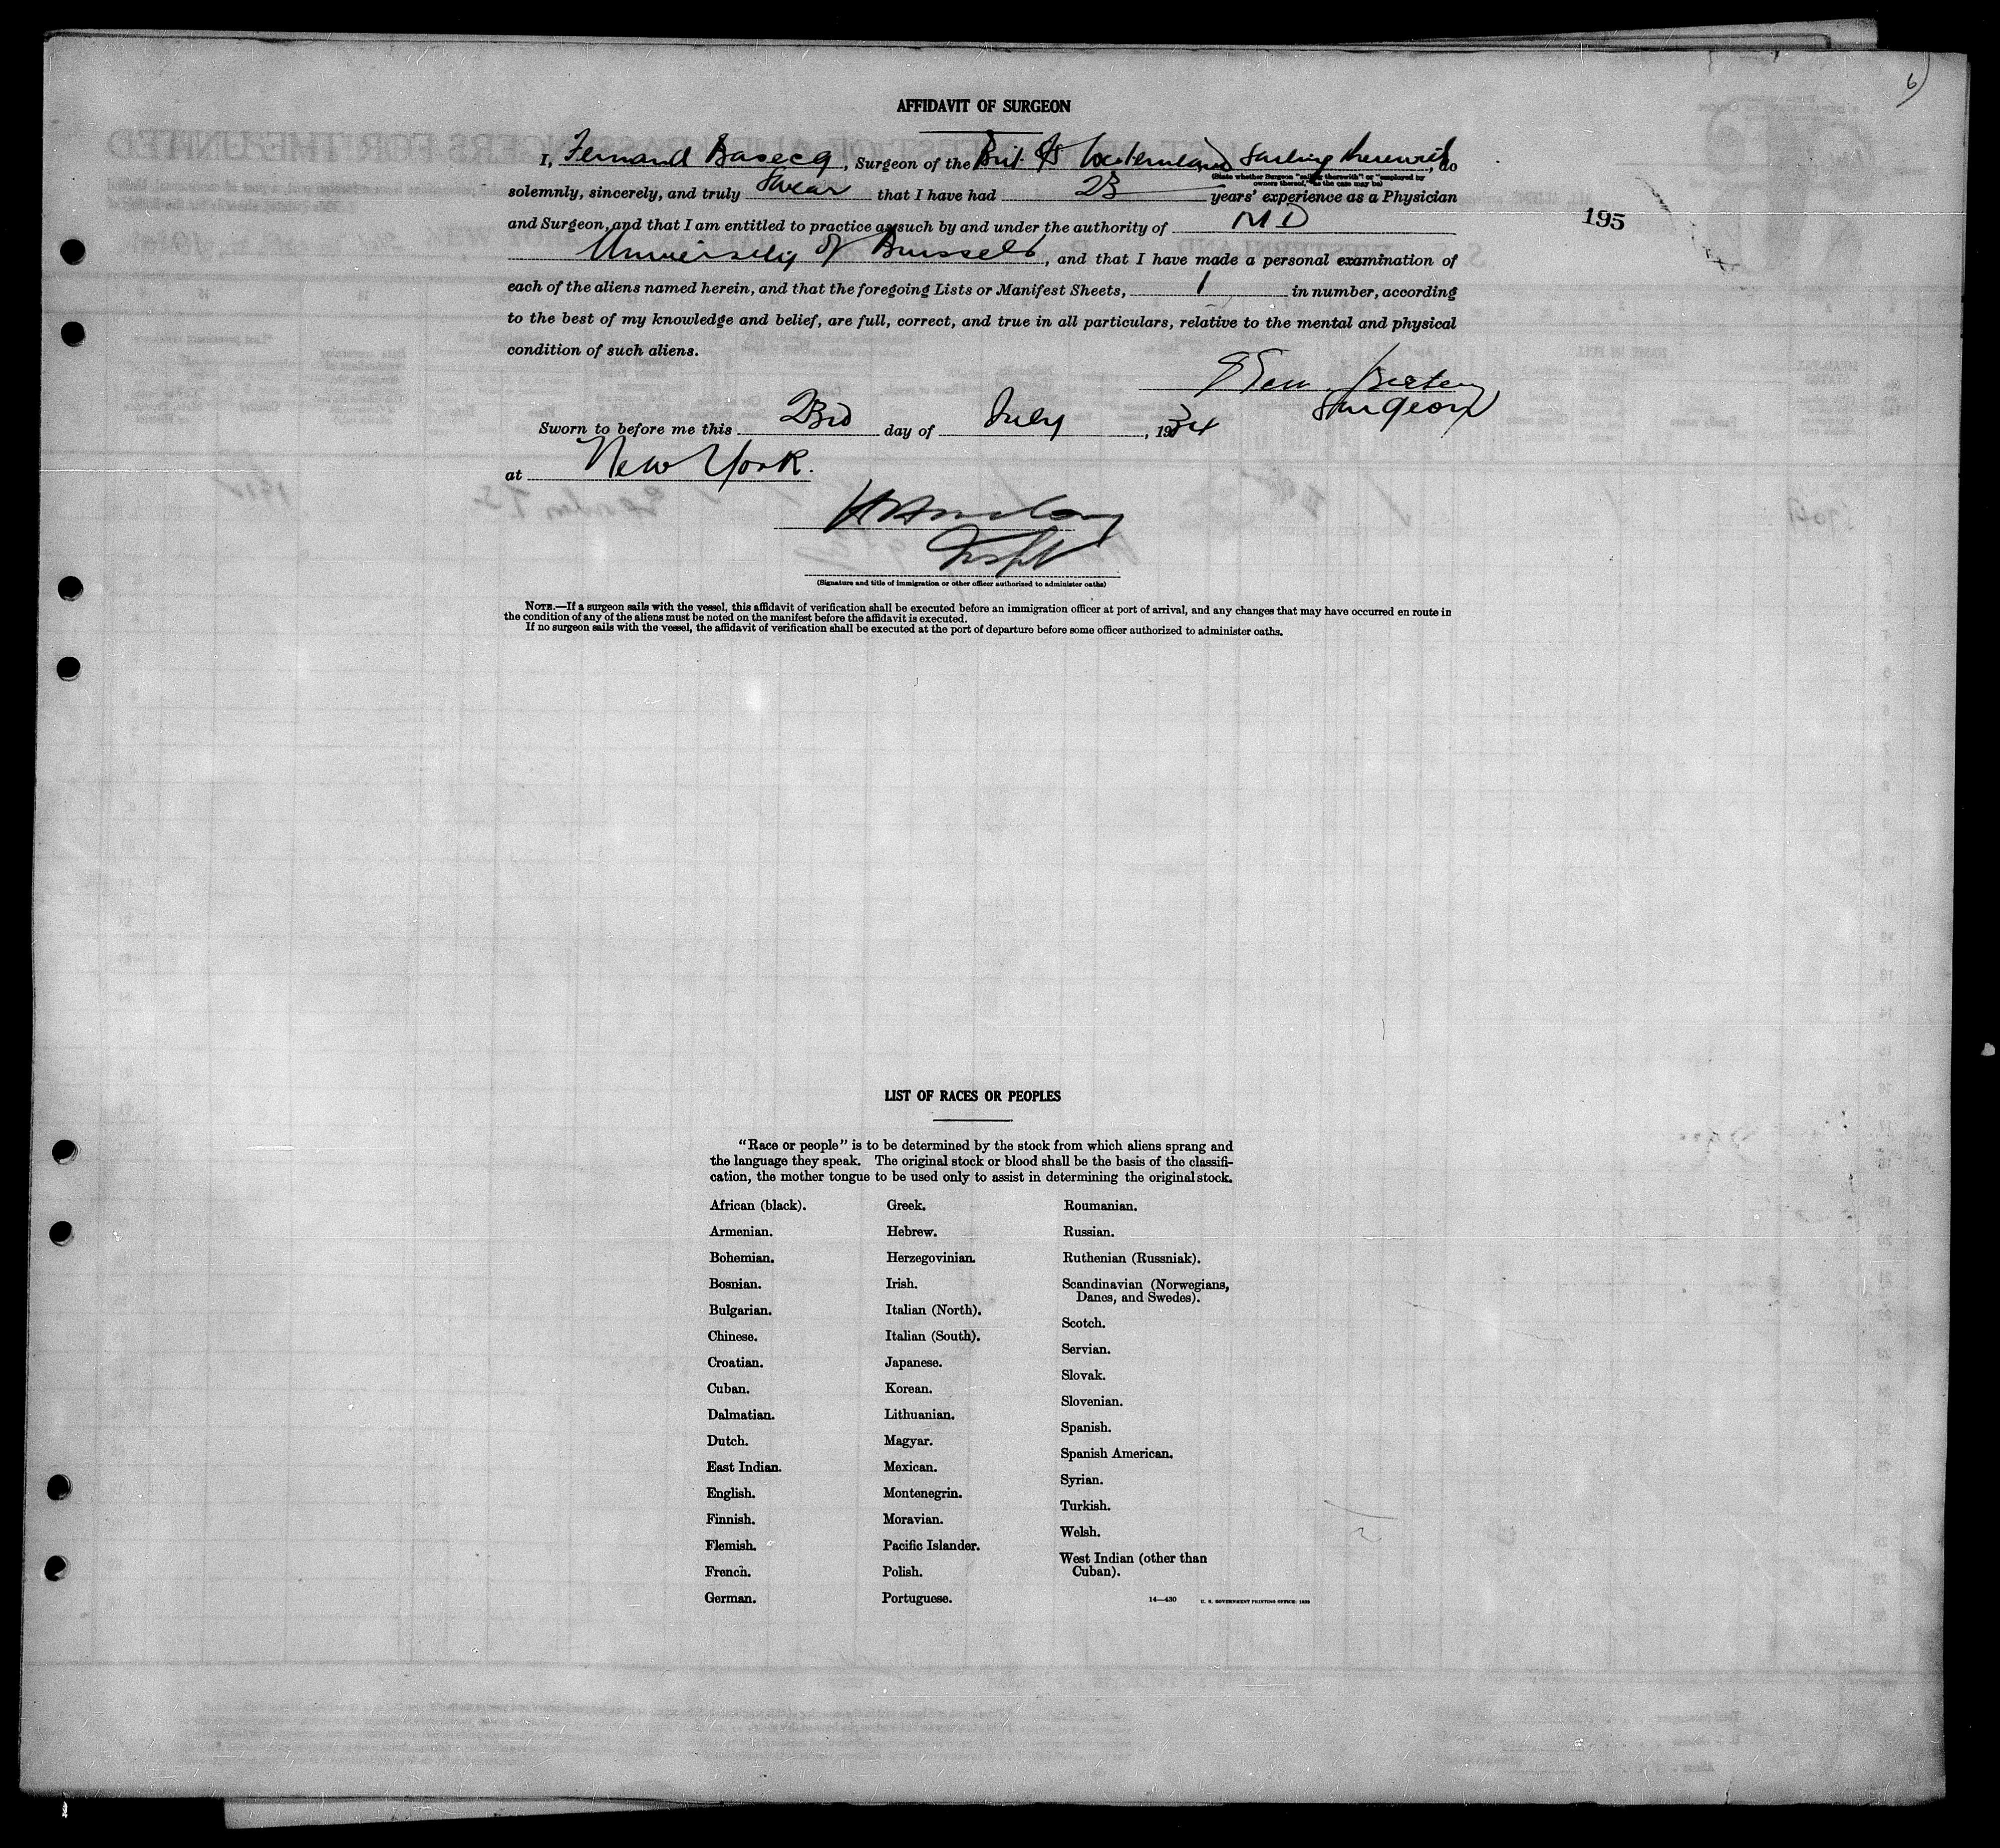 6)
AFFIDAVIT OF SURGEON
I, Fernand Basecq, Surgeon of the Brit SS Westernland Sailing therewith, do
(State whether Surgeon "sailing therewith" or "employed by
owners thereof," as the case may be)
solemnly, sincerely, and truly Swear that I have had 23 years' experience as a Physician
195
and Surgeon, and that I am entitled to practice as such by and under the authority of MD
University of Brussels, and that I have made a personal examination of
each of the aliens named herein, and that the foregoing Lists or Manifest Sheets, 1 in number, according
to the best of my knowledge and belief, are full, correct, and true in all particulars, relative to the mental and physical
condition of such aliens.
Surgeon
Sworn to before me this 23rd day of July, 1934
at New York.
Inspt
(Signature and title of immigration or other officer authorized to administer oaths)
NOTE.—If a surgeon sails with the vessel, this affidavit of verification shall be executed before an immigration officer at port of arrival, and any changes that may have occurred en route in
the condition of any of the aliens must be noted on the manifest before the affidavit is executed.
If no surgeon sails with the vessel, the affidavit of verification shall be executed at the port of departure before some officer authorized to administer oaths.
LIST OF RACES OR PEOPLES
"Race or people" is to be determined by the stock from which aliens sprang and
the language they speak. The original stock or blood shall be the basis of the classifi-
cation, the mother tongue to be used only to assist in determining the original stock.
African (black).
Armenian.
Bohemian.
Bosnian.
Bulgarian.
Chinese.
Croatian.
Cuban.
Dalmatian.
Dutch.
East Indian.
English.
Finnish.
Flemish.
French.
German.
Greek.
Hebrew.
Herzegovinian.
Irish.
Italian (North).
Italian (South).
Japanese.
Korean.
Lithuanian.
Magyar.
Mexican.
Montenegrin.
Moravian.
Pacific Islander.
Polish.
Portuguese.
Roumanian.
Russian.
Ruthenian (Russniak).
Scandinavian (Norwegians,
Danes, and Swedes).
Scotch.
Servian.
Slovak.
Slovenian.
Spanish.
Spanish American.
Syrian.
Turkish.
Welsh.
West Indian (other than
Cuban).
14—430 U. S. GOVERNMENT PRINTING OFFICE: 1933